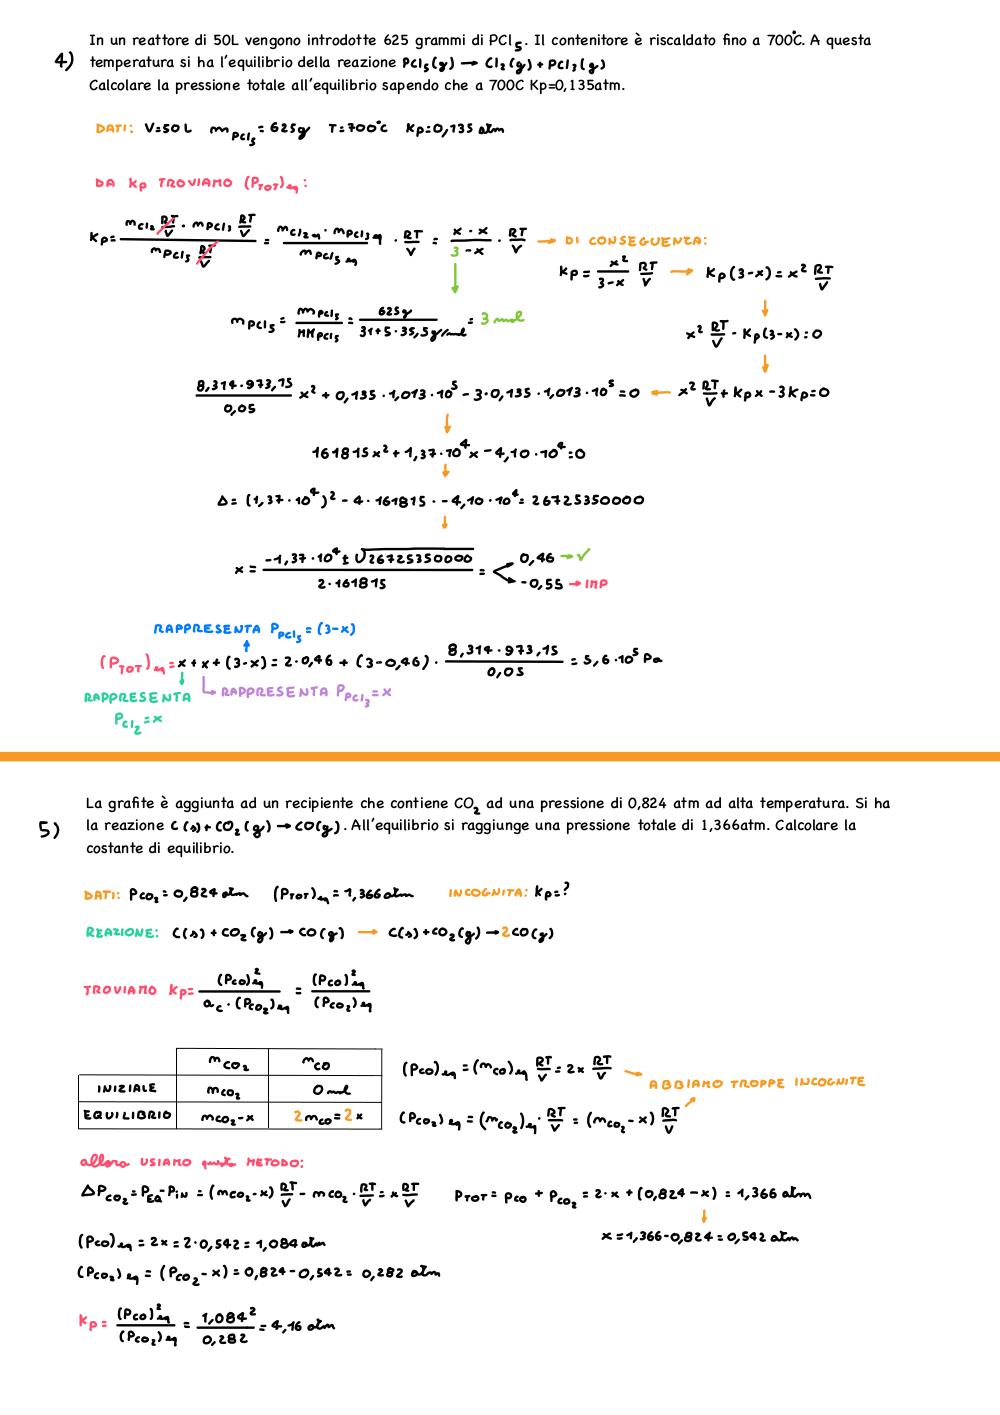 4) In un reattore di 50L vengono introdotte 625 grammi di PCl5. Il contenitore è riscaldato fino a 700°C. A questa
temperatura si ha l'equilibrio della reazione PCl5(g) → Cl2(g) + PCl3(g)
Calcolare la pressione totale all'equilibrio sapendo che a 700C Kp=0,135atm.
DATI: V=50L mPCl5=625g T=700°C Kp=0,135 atm
DA Kp TROVIAMO (PTOT)eq:
Kp= nCl2 RT/V · nPCl3 RT/V / nPCl5 RT/V = nCl2eq · nPCl3eq / nPCl5eq · RT/V = x · x / 3-x · RT/V → DI CONSEGUENZA:
Kp = x²/3-x RT/V → Kp(3-x) = x² RT/V
nPCl5 = mPCl5/MMPCl5 = 625g / 31+5·35,5g/mol = 3 mol
x² RT/V - Kp(3-x)=0
8,314·973,15 / 0,05 x² + 0,135·1,013·10⁵ - 3·0,135·1,013·10⁵ = 0 ← x² RT/V + Kpx - 3Kp=0
161815x² + 1,37·10⁴x - 4,10·10⁴=0
Δ= (1,37·10⁴)² - 4·161815·-4,10·10⁴= 26725350000
x = -1,37·10⁴ ± √26725350000 / 2·161815 = < 0,46 → ✓
-0,55 → IMP
RAPPRESENTA PPCl5 = (3-x)
(PTOT)eq = x + x + (3-x) = 2·0,46 + (3-0,46) · 8,314·973,15 / 0,05 = 5,6·10⁵ Pa
RAPPRESENTA PCl2 = x
RAPPRESENTA PPCl3 = x
5) La grafite è aggiunta ad un recipiente che contiene CO2 ad una pressione di 0,824 atm ad alta temperatura. Si ha
la reazione C(s) + CO2(g) → CO(g). All'equilibrio si raggiunge una pressione totale di 1,366atm. Calcolare la
costante di equilibrio.
DATI: PCO2 = 0,824 atm (PTOT)eq = 1,366 atm INCOGNITA: Kp=?
REAZIONE: C(s) + CO2(g) → CO(g) → C(s) + CO2(g) → 2CO(g)
TROVIAMO Kp= (PCO)²eq / aC · (PCO2)eq = (PCO)²eq / (PCO2)eq
nCO2 nCO
INIZIALE nCO2 0 mol
EQUILIBRIO nCO2-x 2nCO=2x
(PCO)eq = (nCO)eq RT/V = 2x RT/V → ABBIAMO TROPPE INCOGNITE
(PCO2)eq = (nCO2)eq · RT/V = (nCO2-x) RT/V
allora USIAMO questo METODO:
ΔPCO2 = PEQ - PIN = (nCO2-x) RT/V - nCO2 · RT/V = x RT/V PTOT = PCO + PCO2 = 2·x + (0,824-x) = 1,366 atm
x = 1,366-0,824 = 0,542 atm
(PCO)eq = 2x = 2·0,542 = 1,084 atm
(PCO2)eq = (PCO2-x) = 0,824-0,542 = 0,282 atm
Kp = (PCO)²eq / (PCO2)eq = 1,084² / 0,282 = 4,16 atm